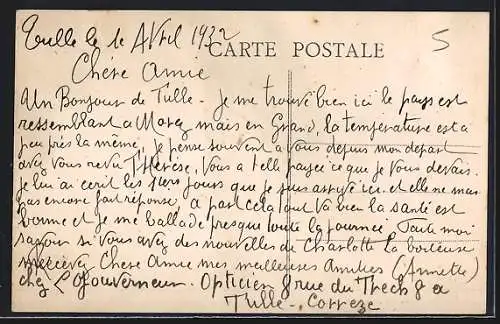 Tulle le 1e Avril 1932
CARTE POSTALE
5
Chère Amie
Un Bonjour de Tulle - Je me trouve bien ici le pays est
ressemblant a mais en Grand, la température est a
peu près la même, je pense souvent a Vous depuis mon depart
avez Vous revu Thérèse, Vous a t elle payée ce que je Vous devais.
Je lui ai ecrit les 1ers jours que je suis arrivé ici et elle ne m'as
pas encore fait réponse, a part cela tout va bien la santé est
bonne et je me ballade presque toute la journée. Faite moi
savoir si Vous avez des nouvelles de Charlotte la boiteuse
recevez Chère Amie mes meilleures Amitiés (Annette)
chez Lagouverneur. Opticien 8 rue du Trech 8 a
Tulle - Correze